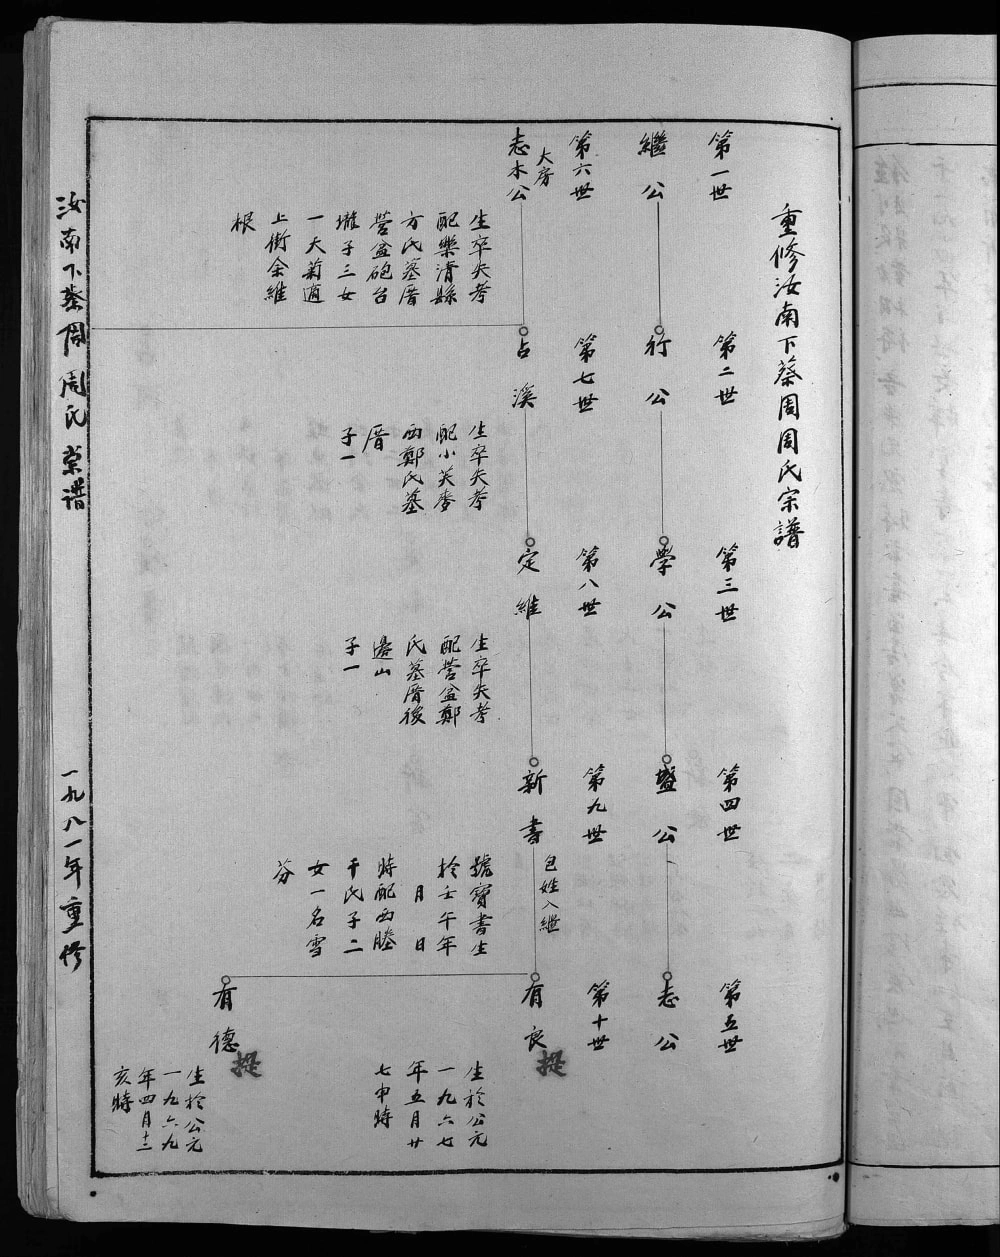 重修汝南下蔡周周氏宗譜
第一世
第二世
第三世
第四世
第五世
繼公
行公
學公
盬公
志公
第六世
第七世
第八世
第九世
第十世
大房
志木公
生卒失考
配樂清縣
方氏墓厝
營盆砲台
瓏子三女
一天菊適
上街余維
根
占溪
生卒失考
配小芙蓉
西鄭氏墓
厝
子一
定維
生卒失考
配營盆鄭
氏墓厝後
邊山
子一
新書
包姓入繼
號寶書生
於壬午年
月日
時配西塍
干氏子二
女一名雪
芬
有良
提
生於公元
一九六七
年五月廿
七申時
有德
提
生於公元
一九六九
年四月十二
亥時
汝南下蔡周周氏宗譜
一九八一年重修